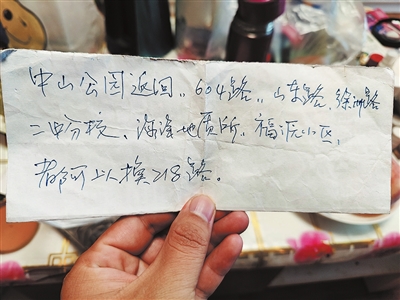 中山公园返回,,604路,,山东路、徐州路
二中分校、海洋地质所、福辰小区,
都可以换218路。